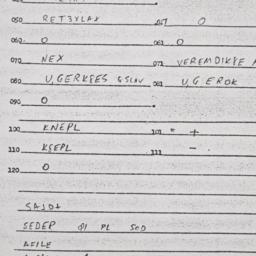 050 RETZYLAX 051 0
060 0 061 0
070 NEX 071 VEREMDIKYE
080 U, GERKEES 081 U, GEROK
090 0
100 KNEPL 101 * +
110 KSEPL 111 -
120 0
SEDEP PL SOD
AFILE